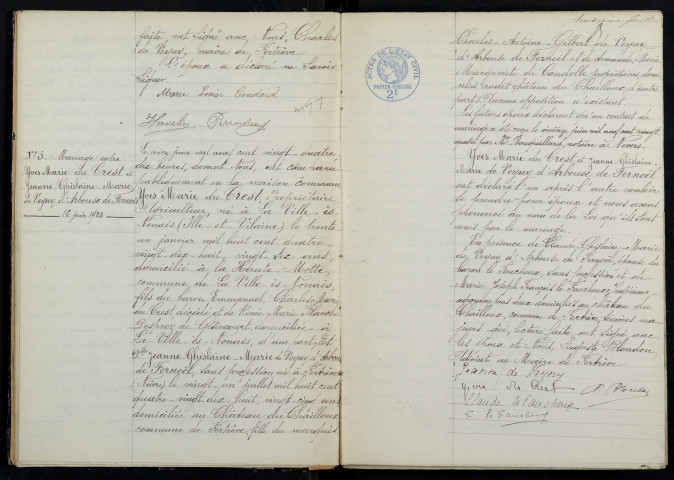 faite, ont signé avec Nous, Charles
de Veyny, maire de Fertrève
L'époux a déclaré ne savoir
signer
Marie Louise Coudard
N° 3. Mariage entre
Yves Marie du Crest et
Jeanne Ghislaine Marie
de Veyny d'Arbouse de Fernoël
16 juin 1924
Le seize juin mil neuf cent vingt quatre
dix heures, devant Nous, ont comparu
publiquement en la maison commune
Yves Marie du Crest, propriétaire
agriculteur, né à La Ville-ès-
Nonais (Ille et Vilaine) le trente
un janvier mil huit cent quatre-
vingt dix-huit, vingt six ans,
domicilié à la Haute-Motte,
commune de La Ville ès Nonais,
fils du baron Emmanuel Charles Marie
du Crest décédé et de Marie Blanche
domiciliée à
La Ville-ès-Nonais, d'une part. Et
Jeanne Ghislaine-Marie de Veyny d'Arbouse
de Fernoël, sans profession, née à Fertrève
(Nièvre) le vingt un juillet mil huit cent
quatre-vingt dix huit, vingt cinq ans
domiciliée au Château du Chailloux
commune de Fertrève, fille du marquis
ACTES DE L'ÉTAT CIVIL
PAPIER SPÉCIAL
2F
Charles-Antoine-Gilbert de Veyny
d'Arbouse de Fernoël et de Armande Marie
Marguerite de Candolle propriétaires domi-
ciliés audit château du Chailloux, d'autre
part. Aucune opposition n'existant.
Les futurs époux déclarent qu'un contrat de
mariage a été reçu le quinze juin mil neuf cent vingt
quatre par Me notaire à Nevers.
Yves Marie du Crest et Jeanne Ghislaine-
Marie de Veyny d'Arbouse de Fernoël
ont déclaré l'un après l'autre vouloir
se prendre pour époux et nous avons
prononcé au nom de la Loi qu'ils sont
unis par le mariage.
En présence de Claude Ghislaine-Marie
de Veyny d'Arbouse de Fernoël, épouse du
baron Le Faucheux, sans profession et de
Marie Joseph François Le Faucheux,
tous deux domiciliés au château du
Chailloux, commune de Fertrève, témoins ma-
jeurs qui, lecture faite ont signé avec
les époux et Nous, Blondon
adjoint au Maire de Fertrève
Jeanne de Veyny
Yves du Crest
Claude le Faucheux
le Faucheux